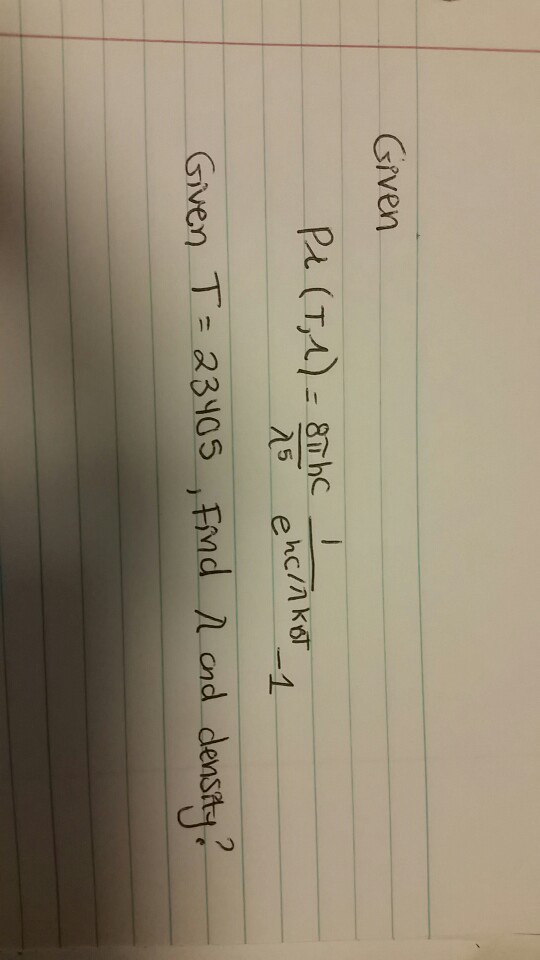 Given
Pλ (T,λ) = 8πhc/λ⁵ 1/e^hc/λkBT -1
Given T = 23405, Find λ and density?